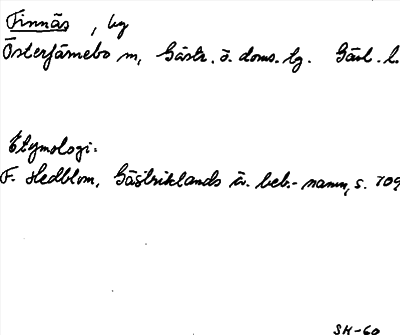 Finnäs, by
Österfärnebo sn, Gästr. ö. doms. tg. Gävl. l.
Etymologi:
F. Hedblom, Gästriklands äv. beb.-namn, s. 109
SH-60